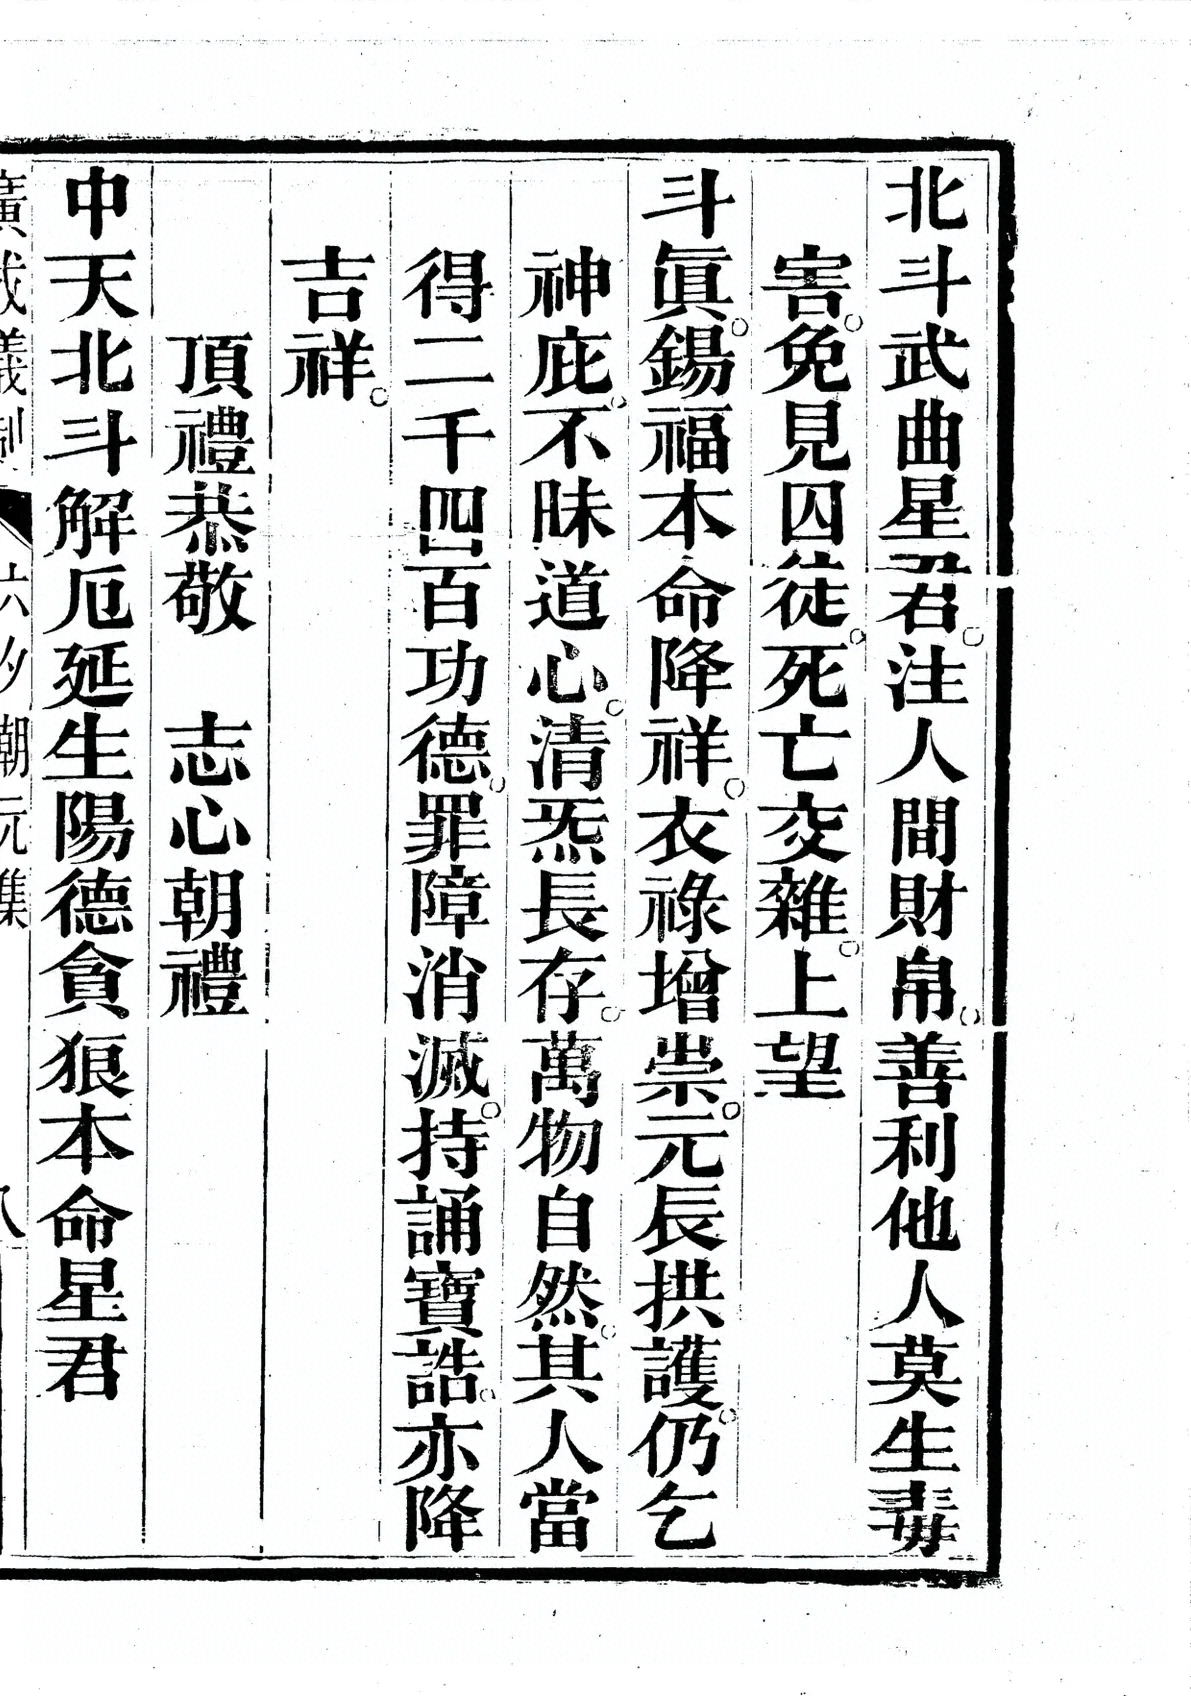 北斗武曲星君。注人間財帛。善利他人莫生毒
害。免見囚徒。死亡交雜。上望
斗眞。錫福本命降祥。衣祿增崇。元長拱護。仍乞
神庇。不昧道心。清炁長存。萬物自然。其人當
得二千四百功德。罪障消滅。持誦寶誥。亦降
吉祥。
頂禮恭敬　志心朝禮
中天北斗解厄延生陽德貪狼本命星君
朝元集
八